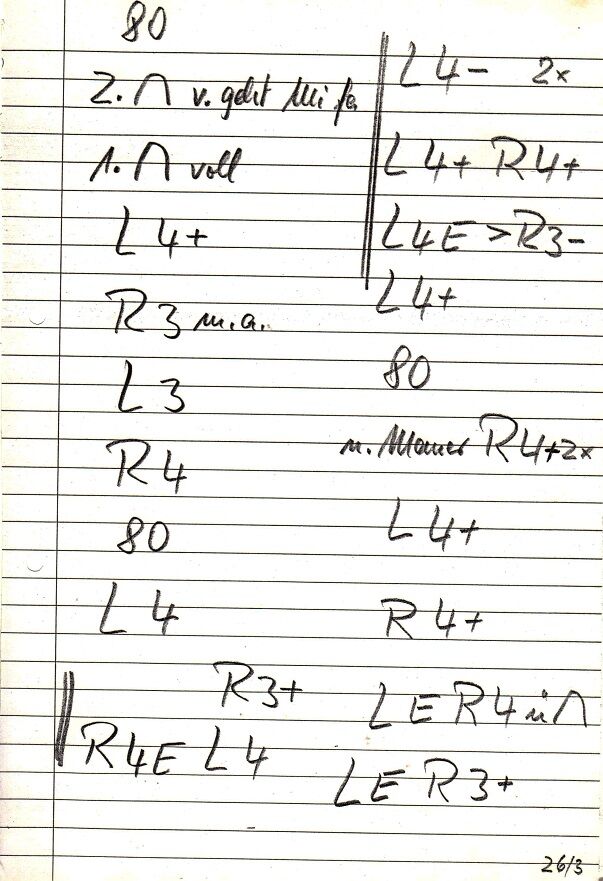 80
2. ∩ v. geht Mi fa
1. ∩ voll
L 4+
R3 m.a.
L 3
R4
80
L 4
R3+
R4E L4
L 4- 2x
L 4+ R4+
L4E > R3-
L4+
80
n. Mauer R4+2x
L 4+
R 4+
L E R 4 ü ∩
L E R 3+
26/3